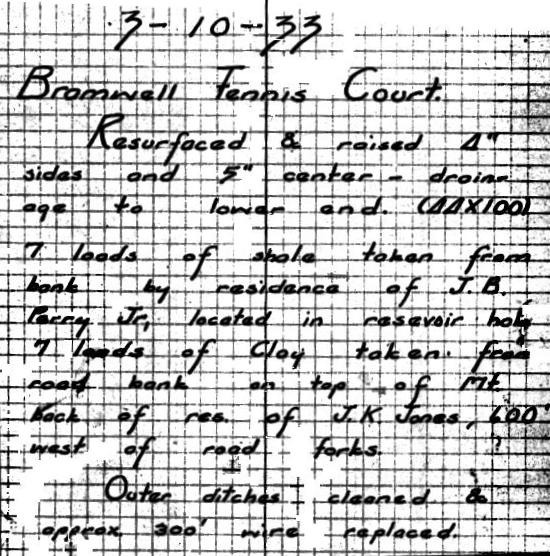 3-10-33
Bramwell Tennis Court.
Resurfaced & raised 4"
sides and 5" center - drain-
age to lower end. (44X100)
7 loads of shale taken from
bank by residence of J.B.
Perry Jr, located in resevoir hole
7 loads of Clay taken from
road bank on top of Mt.
back of res. of J.K Jones, 600'
west of road forks.
Outer ditches cleaned &
approx 300' wire replaced.